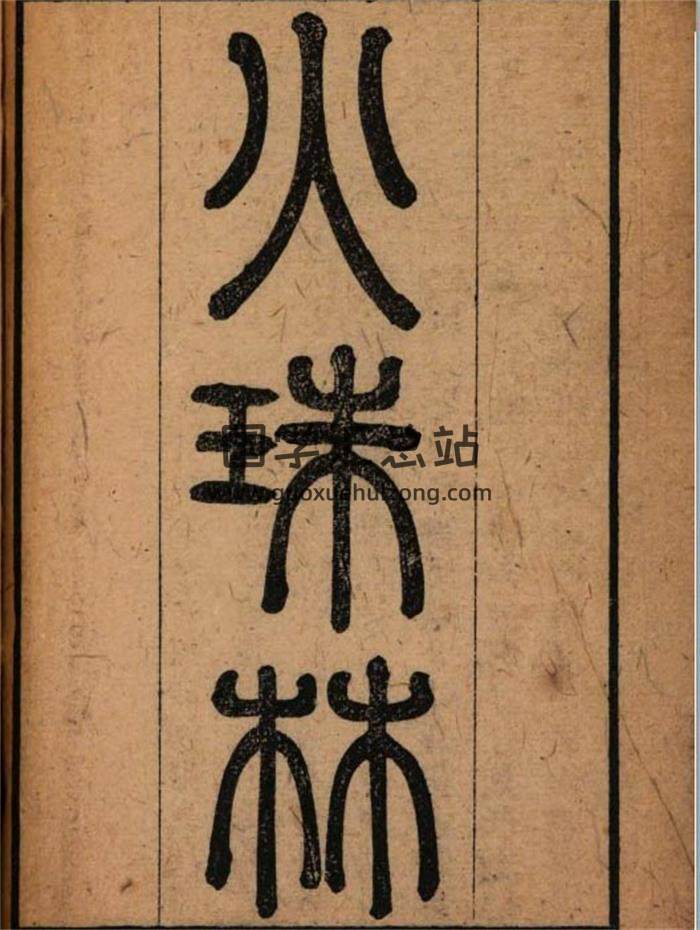 火
珠
林
国学汇总站
www.guoxuehuizong.com